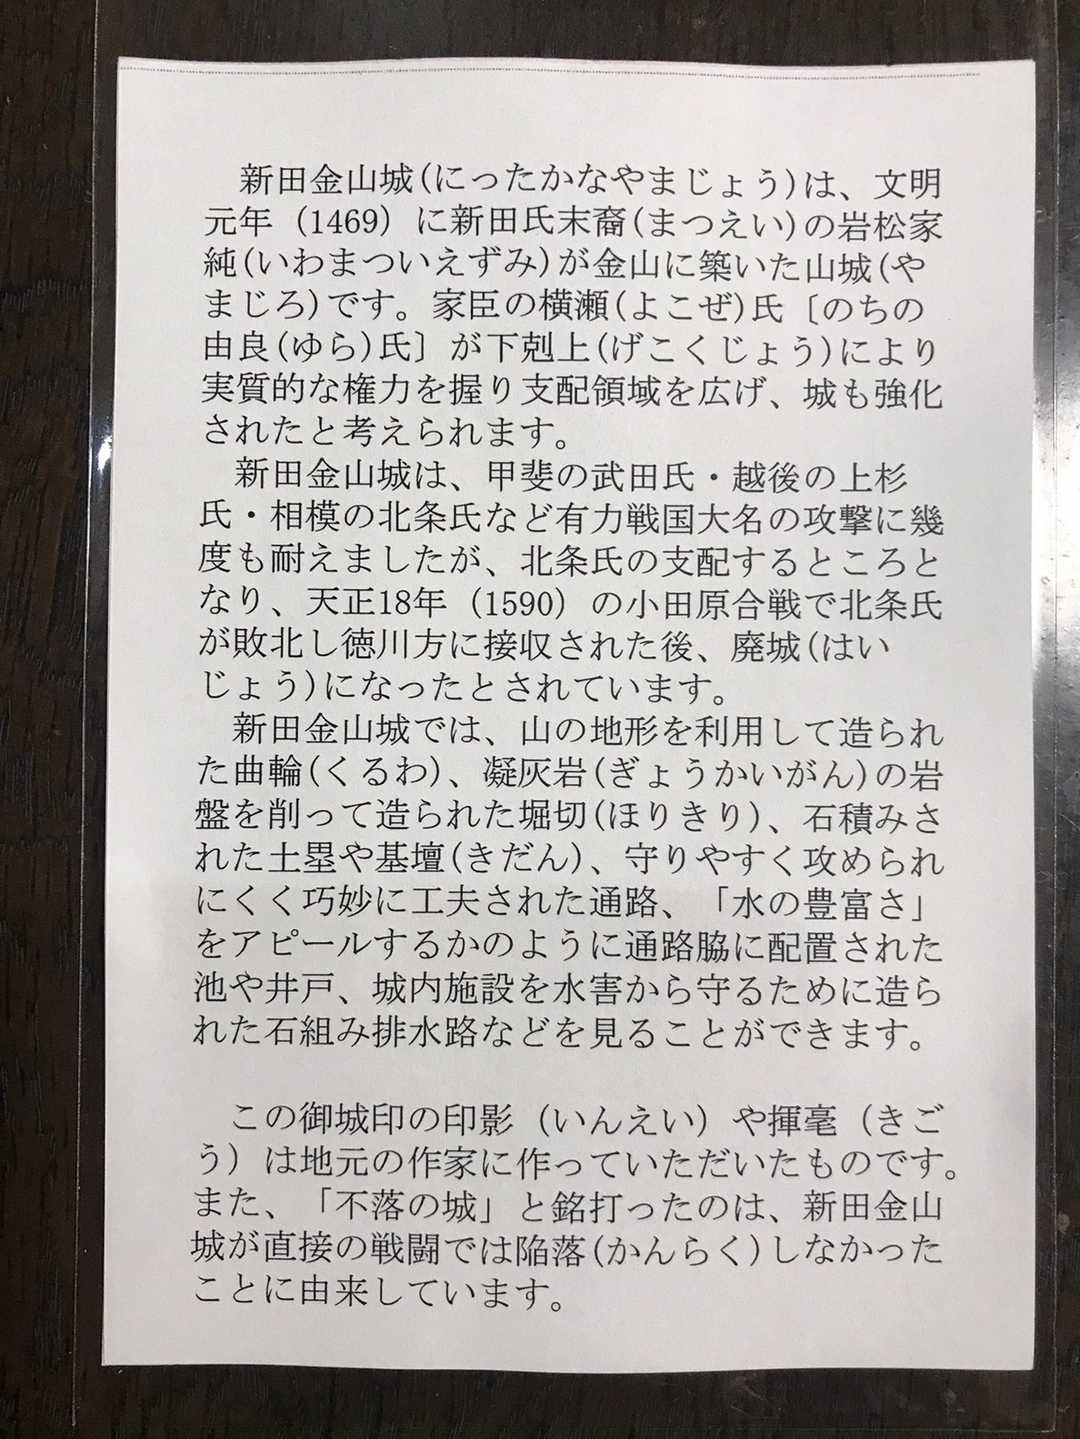 新田金山城(にったかなやまじょう)は、文明
元年（1469）に新田氏末裔(まつえい)の岩松家
純(いわまついえずみ)が金山に築いた山城(や
まじろ)です。家臣の横瀬(よこぜ)氏〔のちの
由良(ゆら)氏〕が下剋上(げこくじょう)により
実質的な権力を握り支配領域を広げ、城も強化
されたと考えられます。
新田金山城は、甲斐の武田氏・越後の上杉
氏・相模の北条氏など有力戦国大名の攻撃に幾
度も耐えましたが、北条氏の支配するところと
なり、天正18年（1590）の小田原合戦で北条氏
が敗北し徳川方に接収された後、廃城(はい
じょう)になったとされています。
新田金山城では、山の地形を利用して造られ
た曲輪(くるわ)、凝灰岩(ぎょうかいがん)の岩
盤を削って造られた堀切(ほりきり)、石積みさ
れた土塁や基壇(きだん)、守りやすく攻められ
にくく巧妙に工夫された通路、「水の豊富さ」
をアピールするかのように通路脇に配置された
池や井戸、城内施設を水害から守るために造ら
れた石組み排水路などを見ることができます。
この御城印の印影（いんえい）や揮毫（きご
う）は地元の作家に作っていただいたものです。
また、「不落の城」と銘打ったのは、新田金山
城が直接の戦闘では陥落(かんらく)しなかった
ことに由来しています。